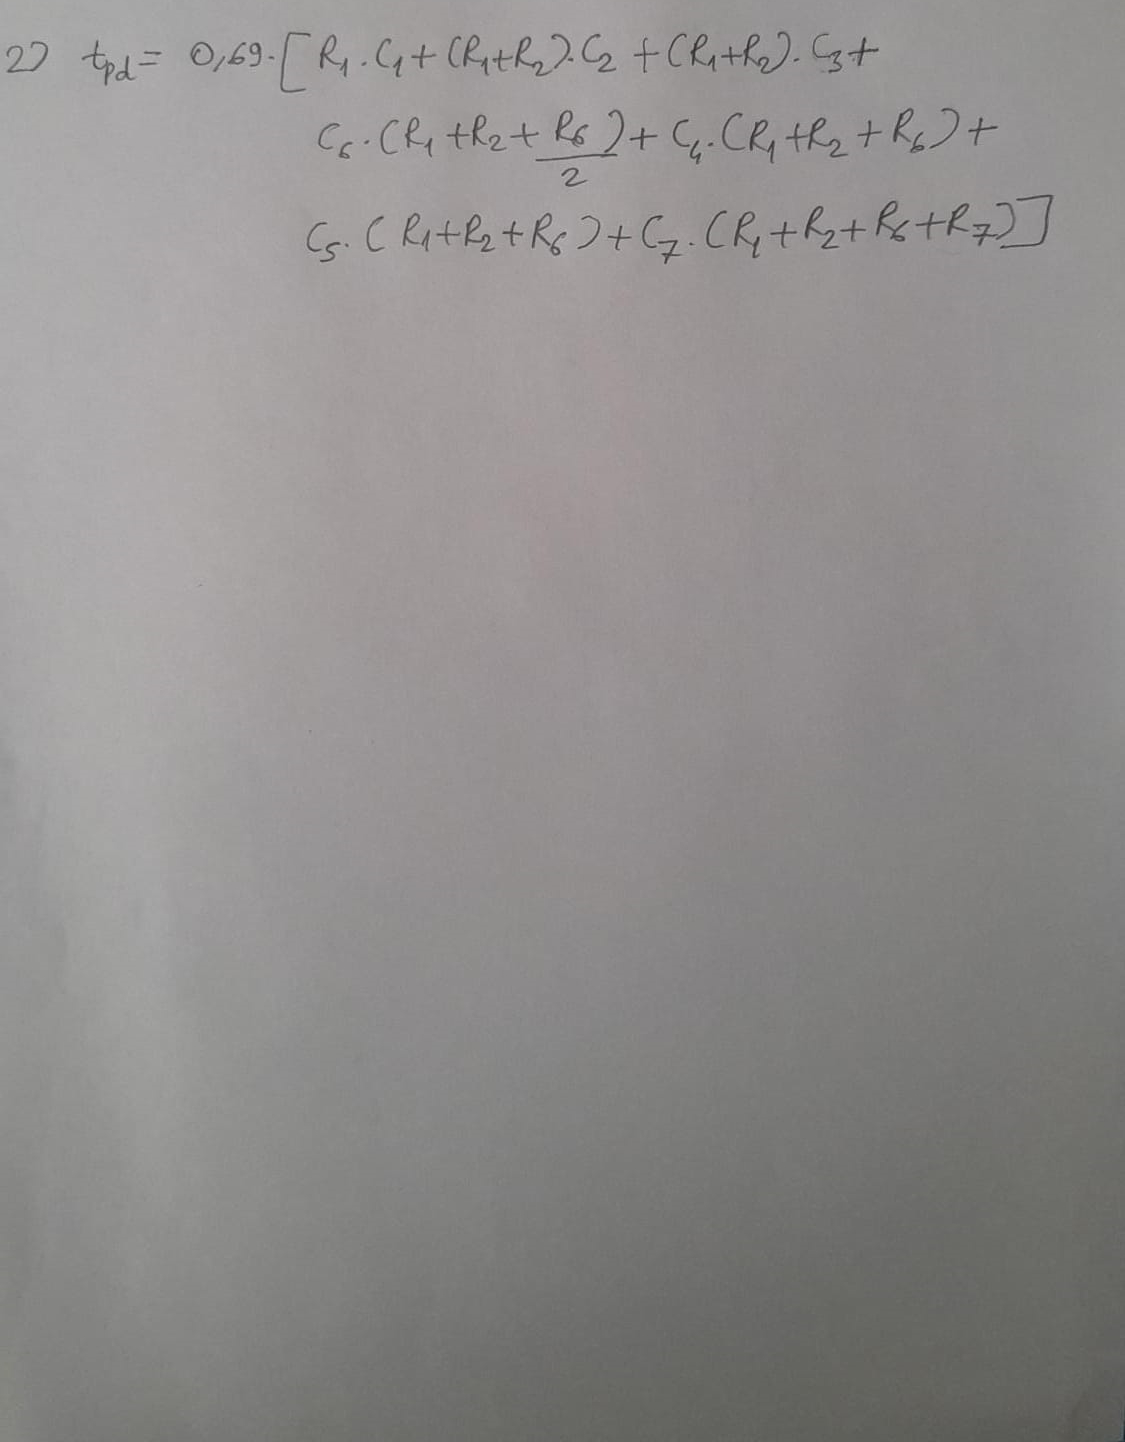 2) tpd = 0,69·[R₁·C₁+(R₁+R₂)·C₂+(R₁+R₂)·C₃+
C₆·(R₁+R₂+R₆/2)+C₄·(R₁+R₂+R₆)+
C₅·(R₁+R₂+R₆)+C₇·(R₁+R₂+R₆+R₇)]